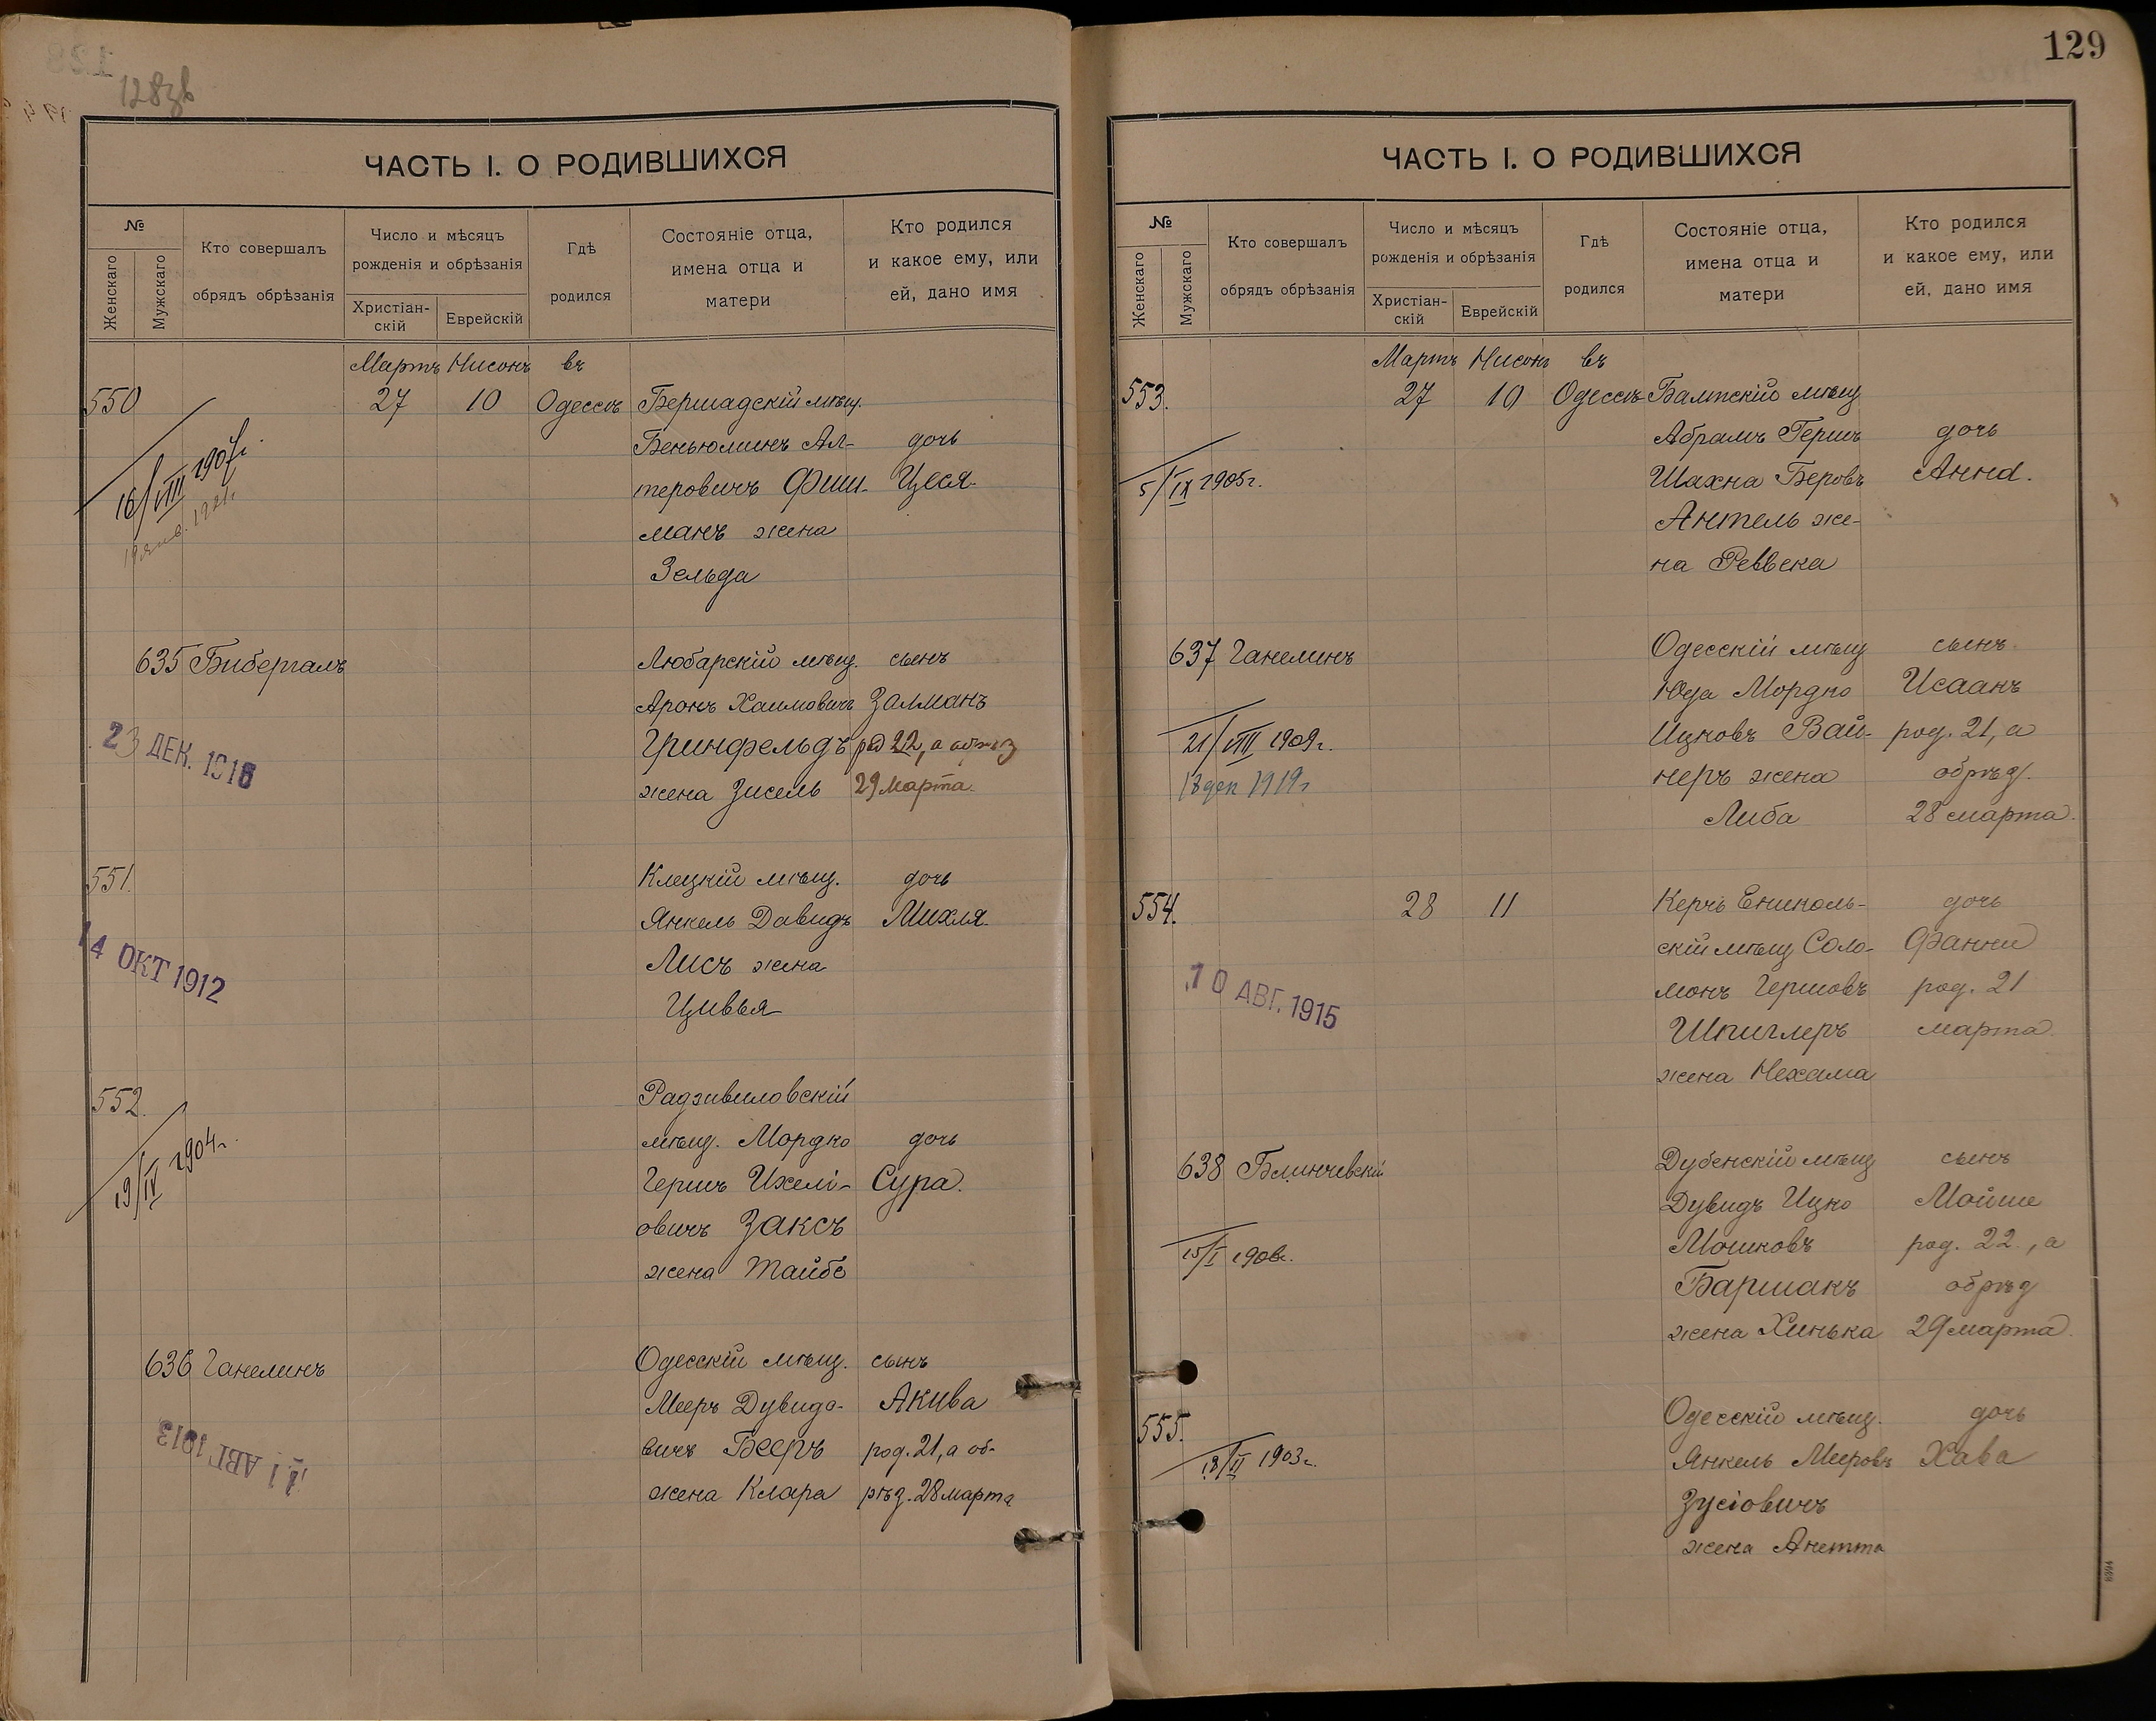 128зв
ЧАСТЬ I. О РОДИВШИХСЯ
№
Женскаго
Мужскаго
Кто совершалъ
обрядъ обрѣзанія
Число и мѣсяцъ
рожденія и обрѣзанія
Христіан-
скій
Еврейскій
Гдѣ
родился
Состояніе отца,
имена отца и
матери
Кто родился
и какое ему, или
ей, дано имя
Мартъ Нисонъ въ
550 27 10 Одессѣ Бершадскій мѣщ.
Беньюминъ Ал- дочь
теровичъ Фиш- Цеся
манъ жена
Зельда
16/VIII 1907г.
635 Бибергалъ Любарскій мѣщ. сынъ
Аронъ Хаимовичъ Залманъ
Гринфельдъ род 22, а обрѣз
жена Зисель 29 Марта.
23 ДЕК. 1916
551. Клецкій мѣщ. дочь
Янкель Давидъ Михля
Лисъ жена
Цивья
14 ОКТ 1912
552. Радзивиловскій
мѣщ. Мордко дочь
Гершъ Ихелі- Сура.
овичъ Заксъ
жена Тайбе
19/IV 1904г.
636 Ганелинъ Одесскій мѣщ. сынъ
Мееръ Дувидо- Акива
вичъ Бееръ род. 21, а об-
жена Клара рѣз. 28 марта
11 АВГ 1913
129
ЧАСТЬ I. О РОДИВШИХСЯ
№
Женскаго
Мужскаго
Кто совершалъ
обрядъ обрѣзанія
Число и мѣсяцъ
рожденія и обрѣзанія
Христіан-
скій
Еврейскій
Гдѣ
родился
Состояніе отца,
имена отца и
матери
Кто родился
и какое ему, или
ей, дано имя
Мартъ Нисонъ въ
553. 27 10 Одессѣ Балтскій мѣщ
Абрамъ Гершъ дочь
Шахна Беровъ Анна.
Антель же-
на Реввека
5/IX 1905г.
637 Ганелинъ Одесскій мѣщ сынъ
Юда Мордко Исаакъ
Ицковъ Вай- род. 21, а
неръ жена обрѣз.
Либа 28 марта.
21/VIII 1909г.
18 дек 1919г
554. 28 11 Керчь Ениколь- дочь
скій мѣщ Соло- Фанни
монъ Гершовъ род. 21
Шпиглеръ марта
жена Нехама
10 АВГ. 1915
638 Блинчевскій Дубенскій мѣщ сынъ
Дувидъ Ицко Мойше
Мошковъ род. 22., а
Баршакъ обрѣз
жена Хинька 29 марта
15/I 1908г.
555. Одесскій мѣщ. дочь
Янкель Мееровъ Хава
Зусіовичъ
жена Анетта
18/II 1903г.